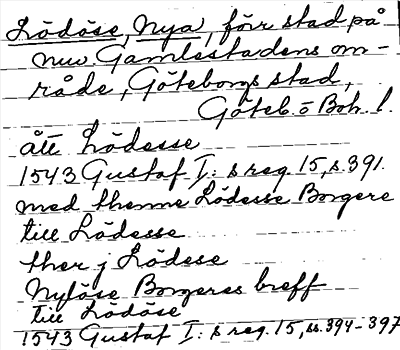 Lödöse, Nya, förr stad på
nuv. Gamlestadens om-
råde, Göteborgs stad,
Göteb. o Boh. l.
att Lödesse
1543 Gustaf I: s reg. 15, s. 391.
med thenne Lödesse Borgere
till Lödesse
ther j Lödese
Nylöse Borgeres breff
till Lödöse
1543 Gustaf I: s reg. 15, ss. 394-397